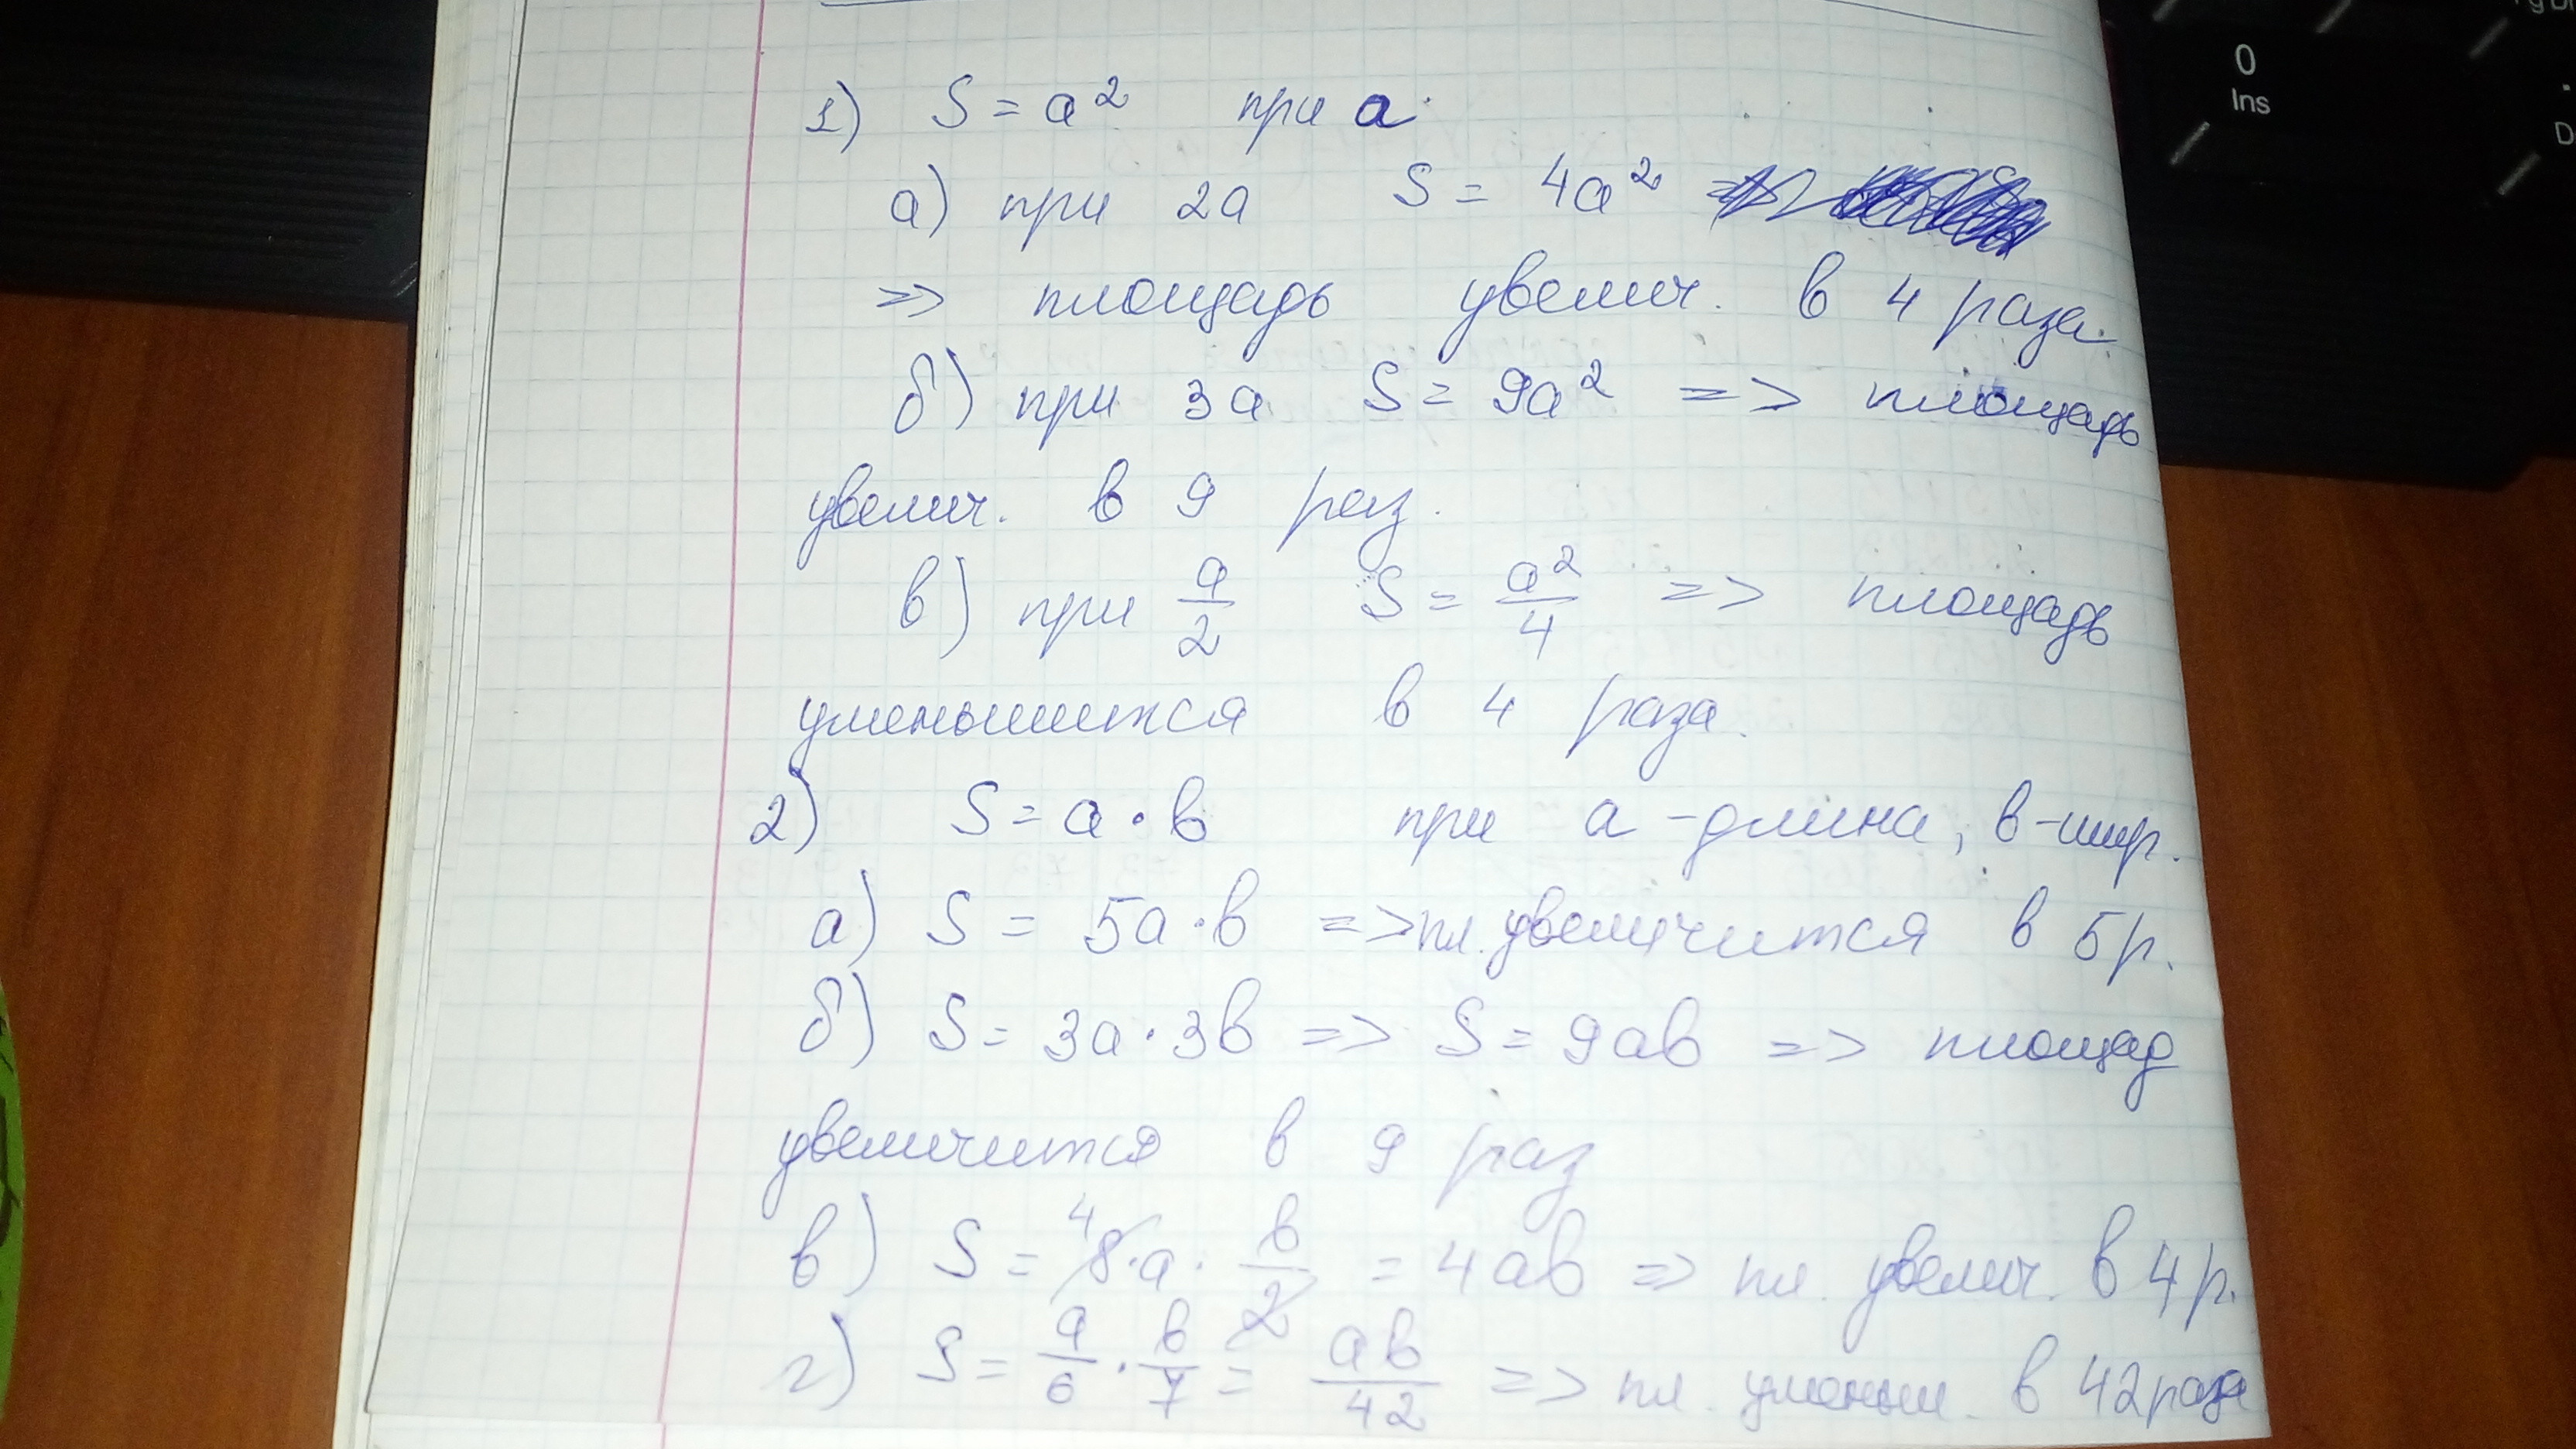 0
Ins
D
1) S = a² при a
а) при 2a S = 4a²
=> площадь увелич. в 4 раза.
б) при 3a S = 9a² => площадь
увелич. в 9 раз.
в) при a/2 S = a²/4 => площадь
уменьшится в 4 раза.
2) S = a · b при a - длина, b - шир.
а) S = 5a · b => пл. увеличится в 5 р.
б) S = 3a · 3b => S = 9ab => площад
увеличится в 9 раз
в) S = 4 8 · a · b/2 = 4ab => пл. увелич. в 4 р.
г) S = a/6 · b/7 = ab/42 => пл. уменьш. в 42 раза